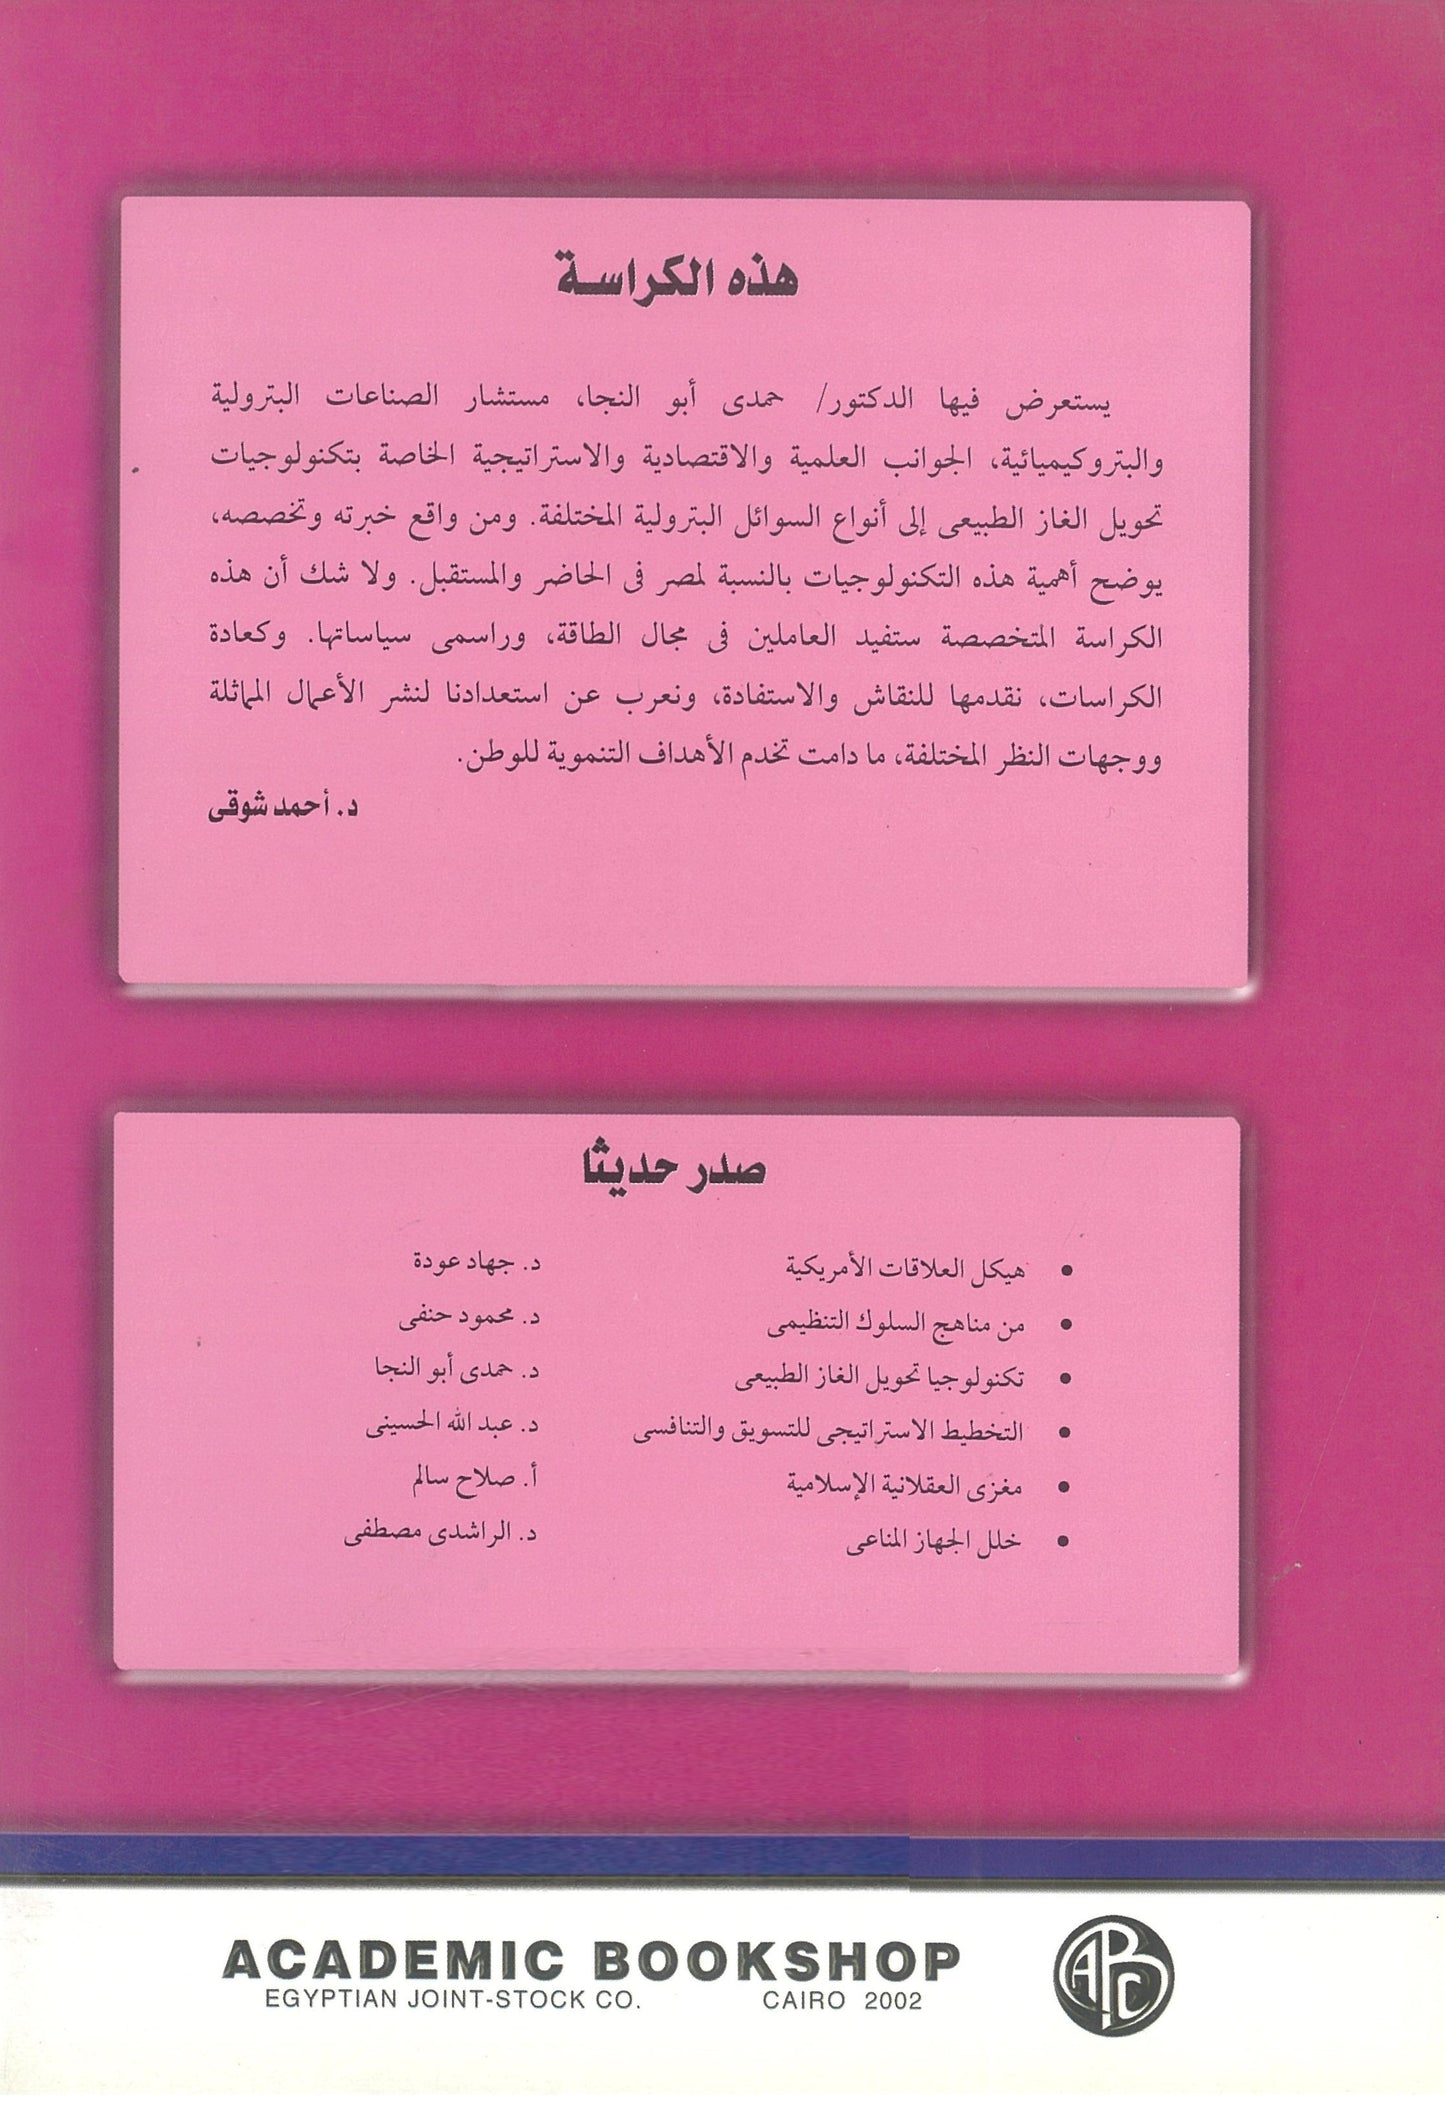 هذه الكراسة
يستعرض فيها الدكتور/ حمدى أبو النجا، مستشار الصناعات البترولية
والبتروكيميائية، الجوانب العلمية والاقتصادية والاستراتيجية الخاصة بتكنولوجيات
تحويل الغاز الطبيعى إلى أنواع السوائل البترولية المختلفة. ومن واقع خبرته وتخصصه،
يوضح أهمية هذه التكنولوجيات بالنسبة لمصر فى الحاضر والمستقبل. ولا شك أن هذه
الكراسة المتخصصة ستفيد العاملين فى مجال الطاقة، وراسمى سياساتها. وكعادة
الكراسات، نقدمها للنقاش والاستفادة، ونعرب عن استعدادنا لنشر الأعمال المماثلة
ووجهات النظر المختلفة، ما دامت تخدم الأهداف التنموية للوطن.
د. أحمد شوقى
صدر حديثا
• هيكل العلاقات الأمريكية د. جهاد عودة
• من مناهج السلوك التنظيمى د. محمود حنفى
• تكنولوجيا تحويل الغاز الطبيعى د. حمدى أبو النجا
• التخطيط الاستراتيجى للتسويق والتنافسى د. عبد الله الحسينى
• مغزى العقلانية الإسلامية أ. صلاح سالم
• خلل الجهاز المناعى د. الراشدى مصطفى
ACADEMIC BOOKSHOP
EGYPTIAN JOINT-STOCK CO. CAIRO 2002
ABC